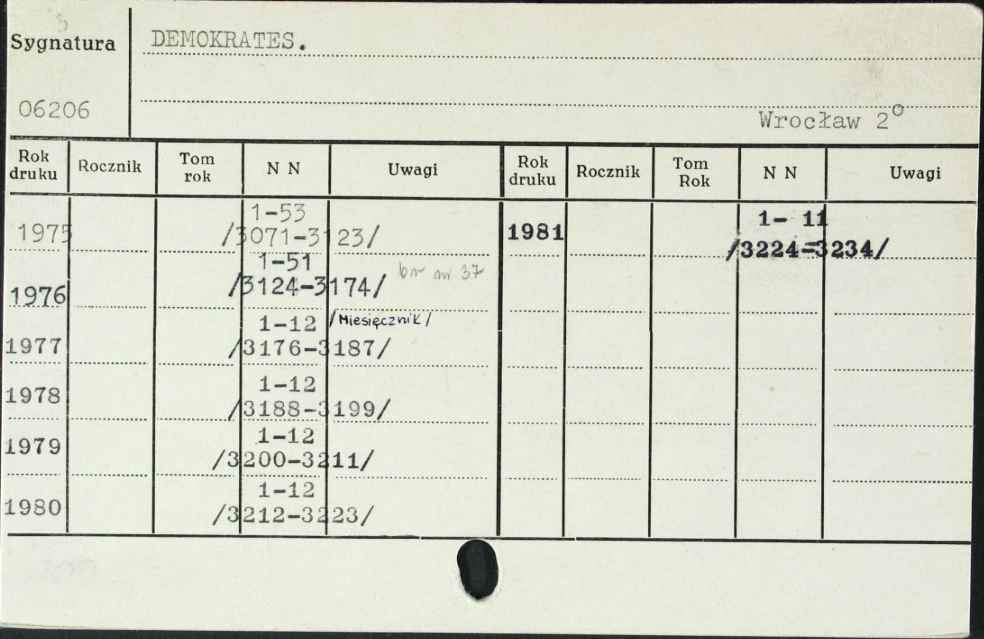 Sygnatura DEMOKRATES.
06206
Wrocław 2°
Rok druku Rocznik Tom rok N N Uwagi Rok druku Rocznik Tom Rok N N Uwagi
1975 1-53 /3071-3123/
1976 1-51 /3124-3174/ br nr 37
1977 1-12 /3176-3187/ /Miesięcznik/
1978 1-12 /3188-3199/
1979 1-12 /3200-3211/
1980 1-12 /3212-3223/
1981 1- 11 /3224-3234/